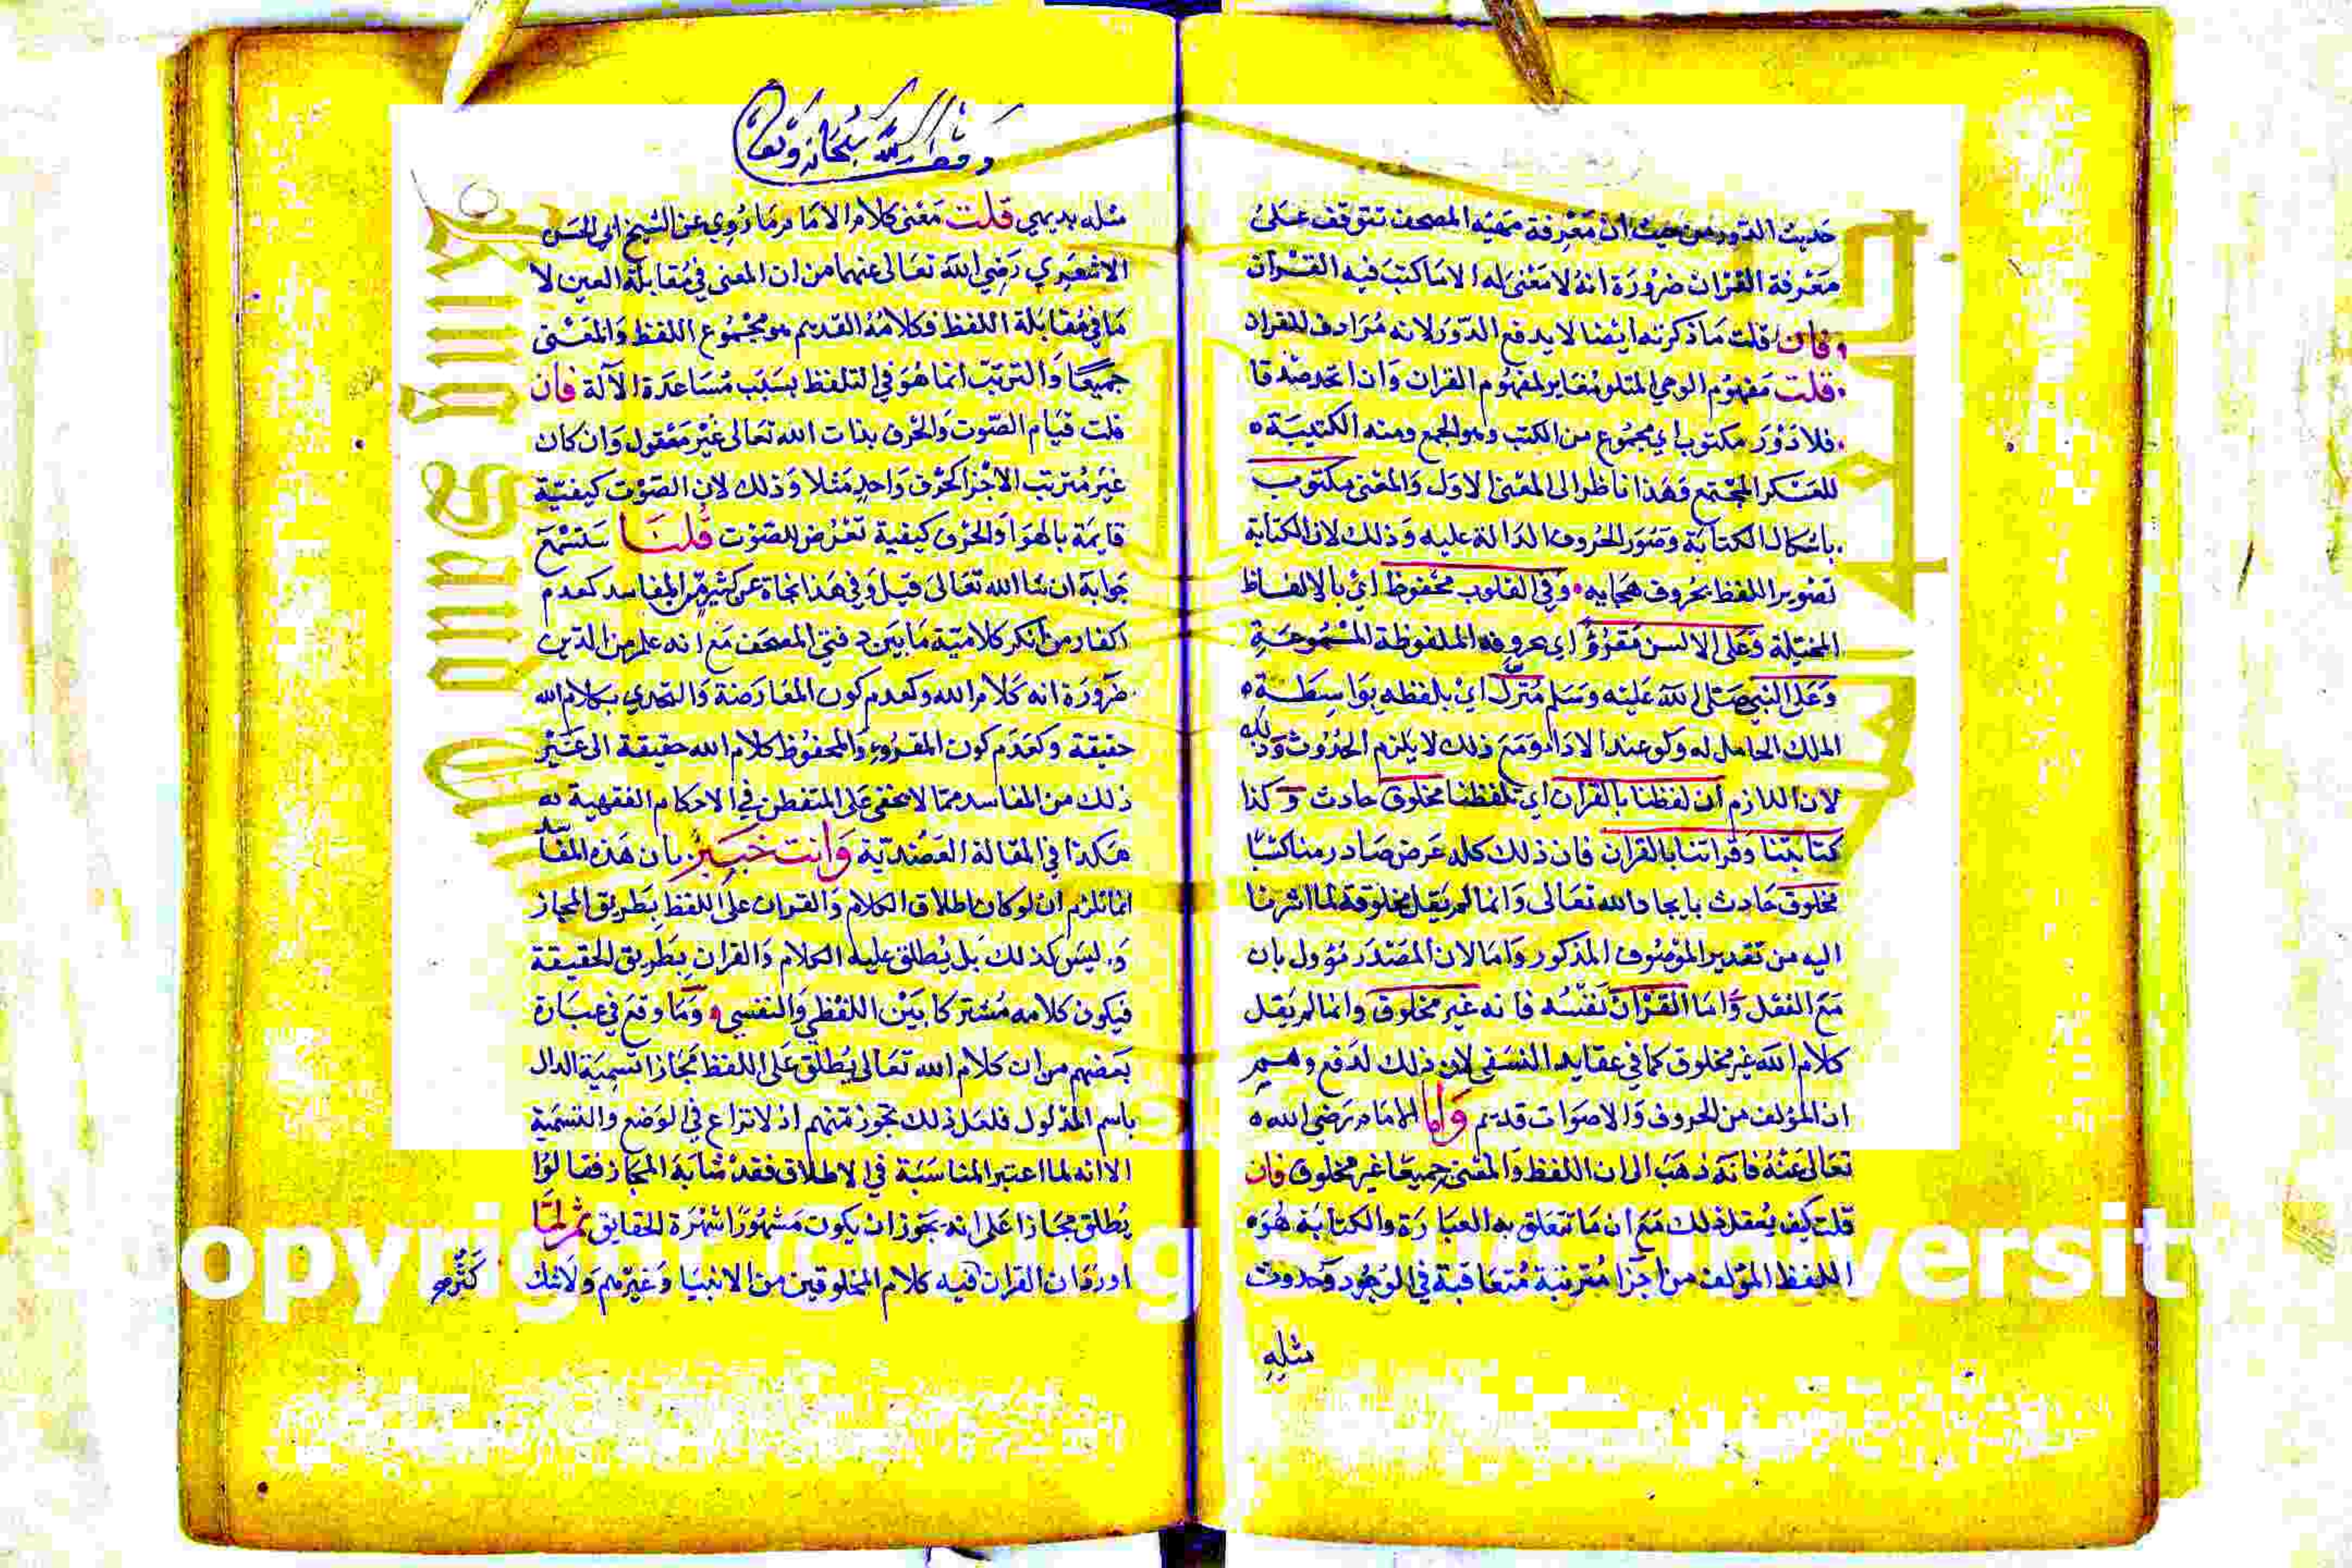 حديث الدور من حيث ان معرفة مهية المصحف تتوقف على
معرفة القران ضرورة انه لا معنى له الا ما كتب فيه القران
فان قلت ما ذكرته ايضا لا يدفع الدور لانه مرادف للقران
قلت مفهوم الوحي المتلو مغاير لمفهوم القران وان اتحد صدقا
فلا دور مكتوب اي مجموع من الكتب وهو الجمع ومنه الكتيبة
للعسكر المجتمع وهذا ناظر الى المعنى الاول والمعنى مكتوب
باشكال الكتابة وصور الحروف الدالة عليه وذلك لان الكتابة
تصوير اللفظ بحروف هجايه وفي القلوب محفوظ اي بالالفاظ
المخيلة وعلى الالسن مقروؤ اي بحروفه الملفوظة المسموعة
وعلى النبي صلى الله عليه وسلم منزل اي بلفظه بواسطة
الملك الحامل له وكو عند الاداء ومع ذلك لا يلزم الحدوث وذلك
لان اللازم ان لفظنا بالقران اي تلفظنا مخلوق حادث وكذا
كتابتنا وقراتنا بالقران فان ذلك كله عرض صادر منا كسبا
مخلوق حادث بايجاد الله تعالى وانما لم يقل مخلوقة لما اشرنا
اليه من تقدير الموصوف المذكور واما لان المصدر مؤول بان
مع الفعل واما القران نفسه فانه غير مخلوق وانما لم يقل
كلام الله غير مخلوق كما في عقايد النسفي لان ذلك لدفع وهم
ان المؤلف من الحروف والاصوات قديم واما الامام رضي الله
تعالى عنه فانه ذهب الى ان اللفظ والمعنى جميعا غير مخلوق فان
قلت كيف يعقل ذلك مع ان ما تتعلق به العبارة والكتابة هو
اللفظ المؤلف من اجزا مترتبة متعاقبة في الوجود وحدوث
مثله
وقف لله سبحانه وتعالى
مثله بديهي قلت معنى كلام الامام ما روي عن الشيخ ابي الحسن
الاشعري رضي الله تعالى عنهما من ان المعنى في مقابلة العين لا
ما في مقابلة اللفظ فكلامه القديم هو مجموع اللفظ والمعنى
جميعا والترتب انما هو في التلفظ بسبب مساعدة الآلة فان
قلت قيام الصوت والحرف بذات الله تعالى غير معقول وان كان
غير مترتب الاجزا كحرف واحد مثلا وذلك لان الصوت كيفية
قايمة بالهوا والحرف كيفية تعرض للصوت قلنا ستسمع
جوابه ان شا الله تعالى قيل وفي هذا نجاة عن كثير من المفاسد كعدم
اكفار من انكر كلامية ما بين دفتي المصحف مع انه علم من الدين
ضرورة انه كلام الله وكعدم كون المعارضة والتحدي بكلام الله
حقيقة وكعدم كون المقروء والمحفوظ كلام الله حقيقة الى غير
ذلك من المفاسد مما لا يخفى على المتفطن في الاحكام الفقهية
هكذا في المقالة العضدية وانت خبير بان هذه المفاسد
انما تلزم ان لو كان اطلاق الكلام والقران على اللفظ بطريق المجاز
وليس كذلك بل يطلق عليه الكلام والقران بطريق الحقيقة
فيكون كلامه مشتركا بين اللفظي والنفسي وما وقع في عبارة
بعضهم من ان كلام الله تعالى يطلق على اللفظ مجازا تسمية الدال
باسم المدلول فلعل ذلك تجوز منهم اذ لا نزاع في الوضع والتسمية
الا انه لما اعتبر المناسبة في الاطلاق فقد شابه المجاز فقالوا
يطلق مجازا على انه يجوز ان يكون مشهورا شهرة الحقايق ثم لما
اورد ان القران فيه كلام المخلوقين من الانبيا وغيرهم ولا شك
opyright (c) King Saud Universit